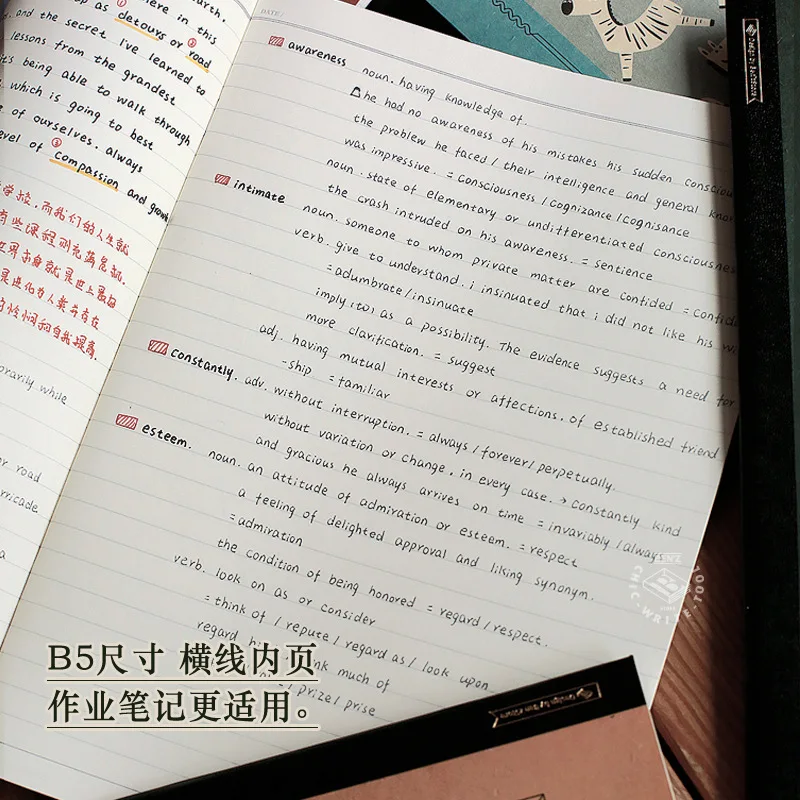 earth.
here in this
as detours or road
and the secret I've learned to
lessons from the grandest
it's being able to walk through
which is going to best
of ourselves. always
level of compassion and grow
学校,而我们的人生就
有些课程则充满危机.
temporarily while
or road
barricade
a
DATE/
awareness noun. having knowledge of.
he had no awareness of his mistakes his sudden conscious
the problem he faced / their intelligence and general know
was impressive. = consciousness / cognizance / cognisance
noun. state of elementary or undifferentiated consciousness
the crash intruded on his awareness. = sentience
intimate noun. someone to whom private matter are confided = confid
verb. give to understand. i insinuated that i did not like his wi
= adumbrate / insinuate
imply (to) as a possibility. The evidence suggests a need for
more clarification. = suggest
adj. having mutual interests or affections. of established friend
-ship = familiar
constantly. adv. without interruption. = always / forever / perpetually.
without variation or change, in every case. → constantly kind
and gracious he always arrives on time = invariably / always
esteem. noun. an attitude of admiration or esteem. = respect
a feeling of delighted approval and liking synonym.
= admiration
the condition of being honored = regard / respect.
verb. look on as or consider
= think of / repute / regard as / look upon
regard hi think much of
= / prize / prise
CHIC·WRITE·TOOL
B5尺寸 横线内页
作业笔记更适用。